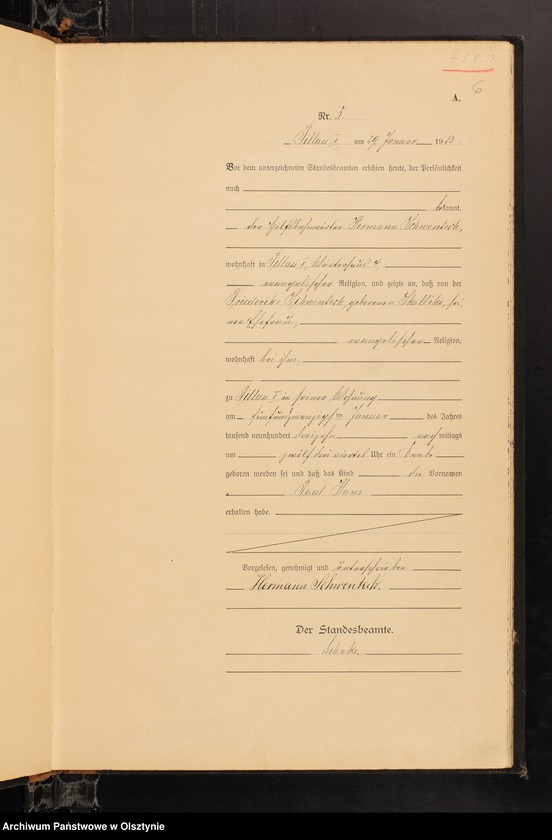 6
A.
Nr. 5.
am 29. Januar 1913.
Vor dem unterzeichneten Standesbeamten erschien heute, der Persönlichkeit
nach
bekannt,
der Hilfsbahnwärter Hermann Schwenteck,
wohnhaft in
evangelischer Religion, und zeigte an, daß von der
Friederike Schwenteck, geborenen sei-
ner Ehefrau,
evangelischer Religion,
wohnhaft bei ihm,
zu in seiner Wohnung
am fünfundzwanzigsten Januar des Jahres
tausend neunhundert dreizehn nachmittags
um zwölf drei viertel Uhr ein Knabe
geboren worden sei und daß das Kind die Vornamen
Paul Hans
erhalten habe.
Vorgelesen, genehmigt und unterschrieben
Hermann Schwenteck.
Der Standesbeamte.
Archiwum Państwowe w Olsztynie